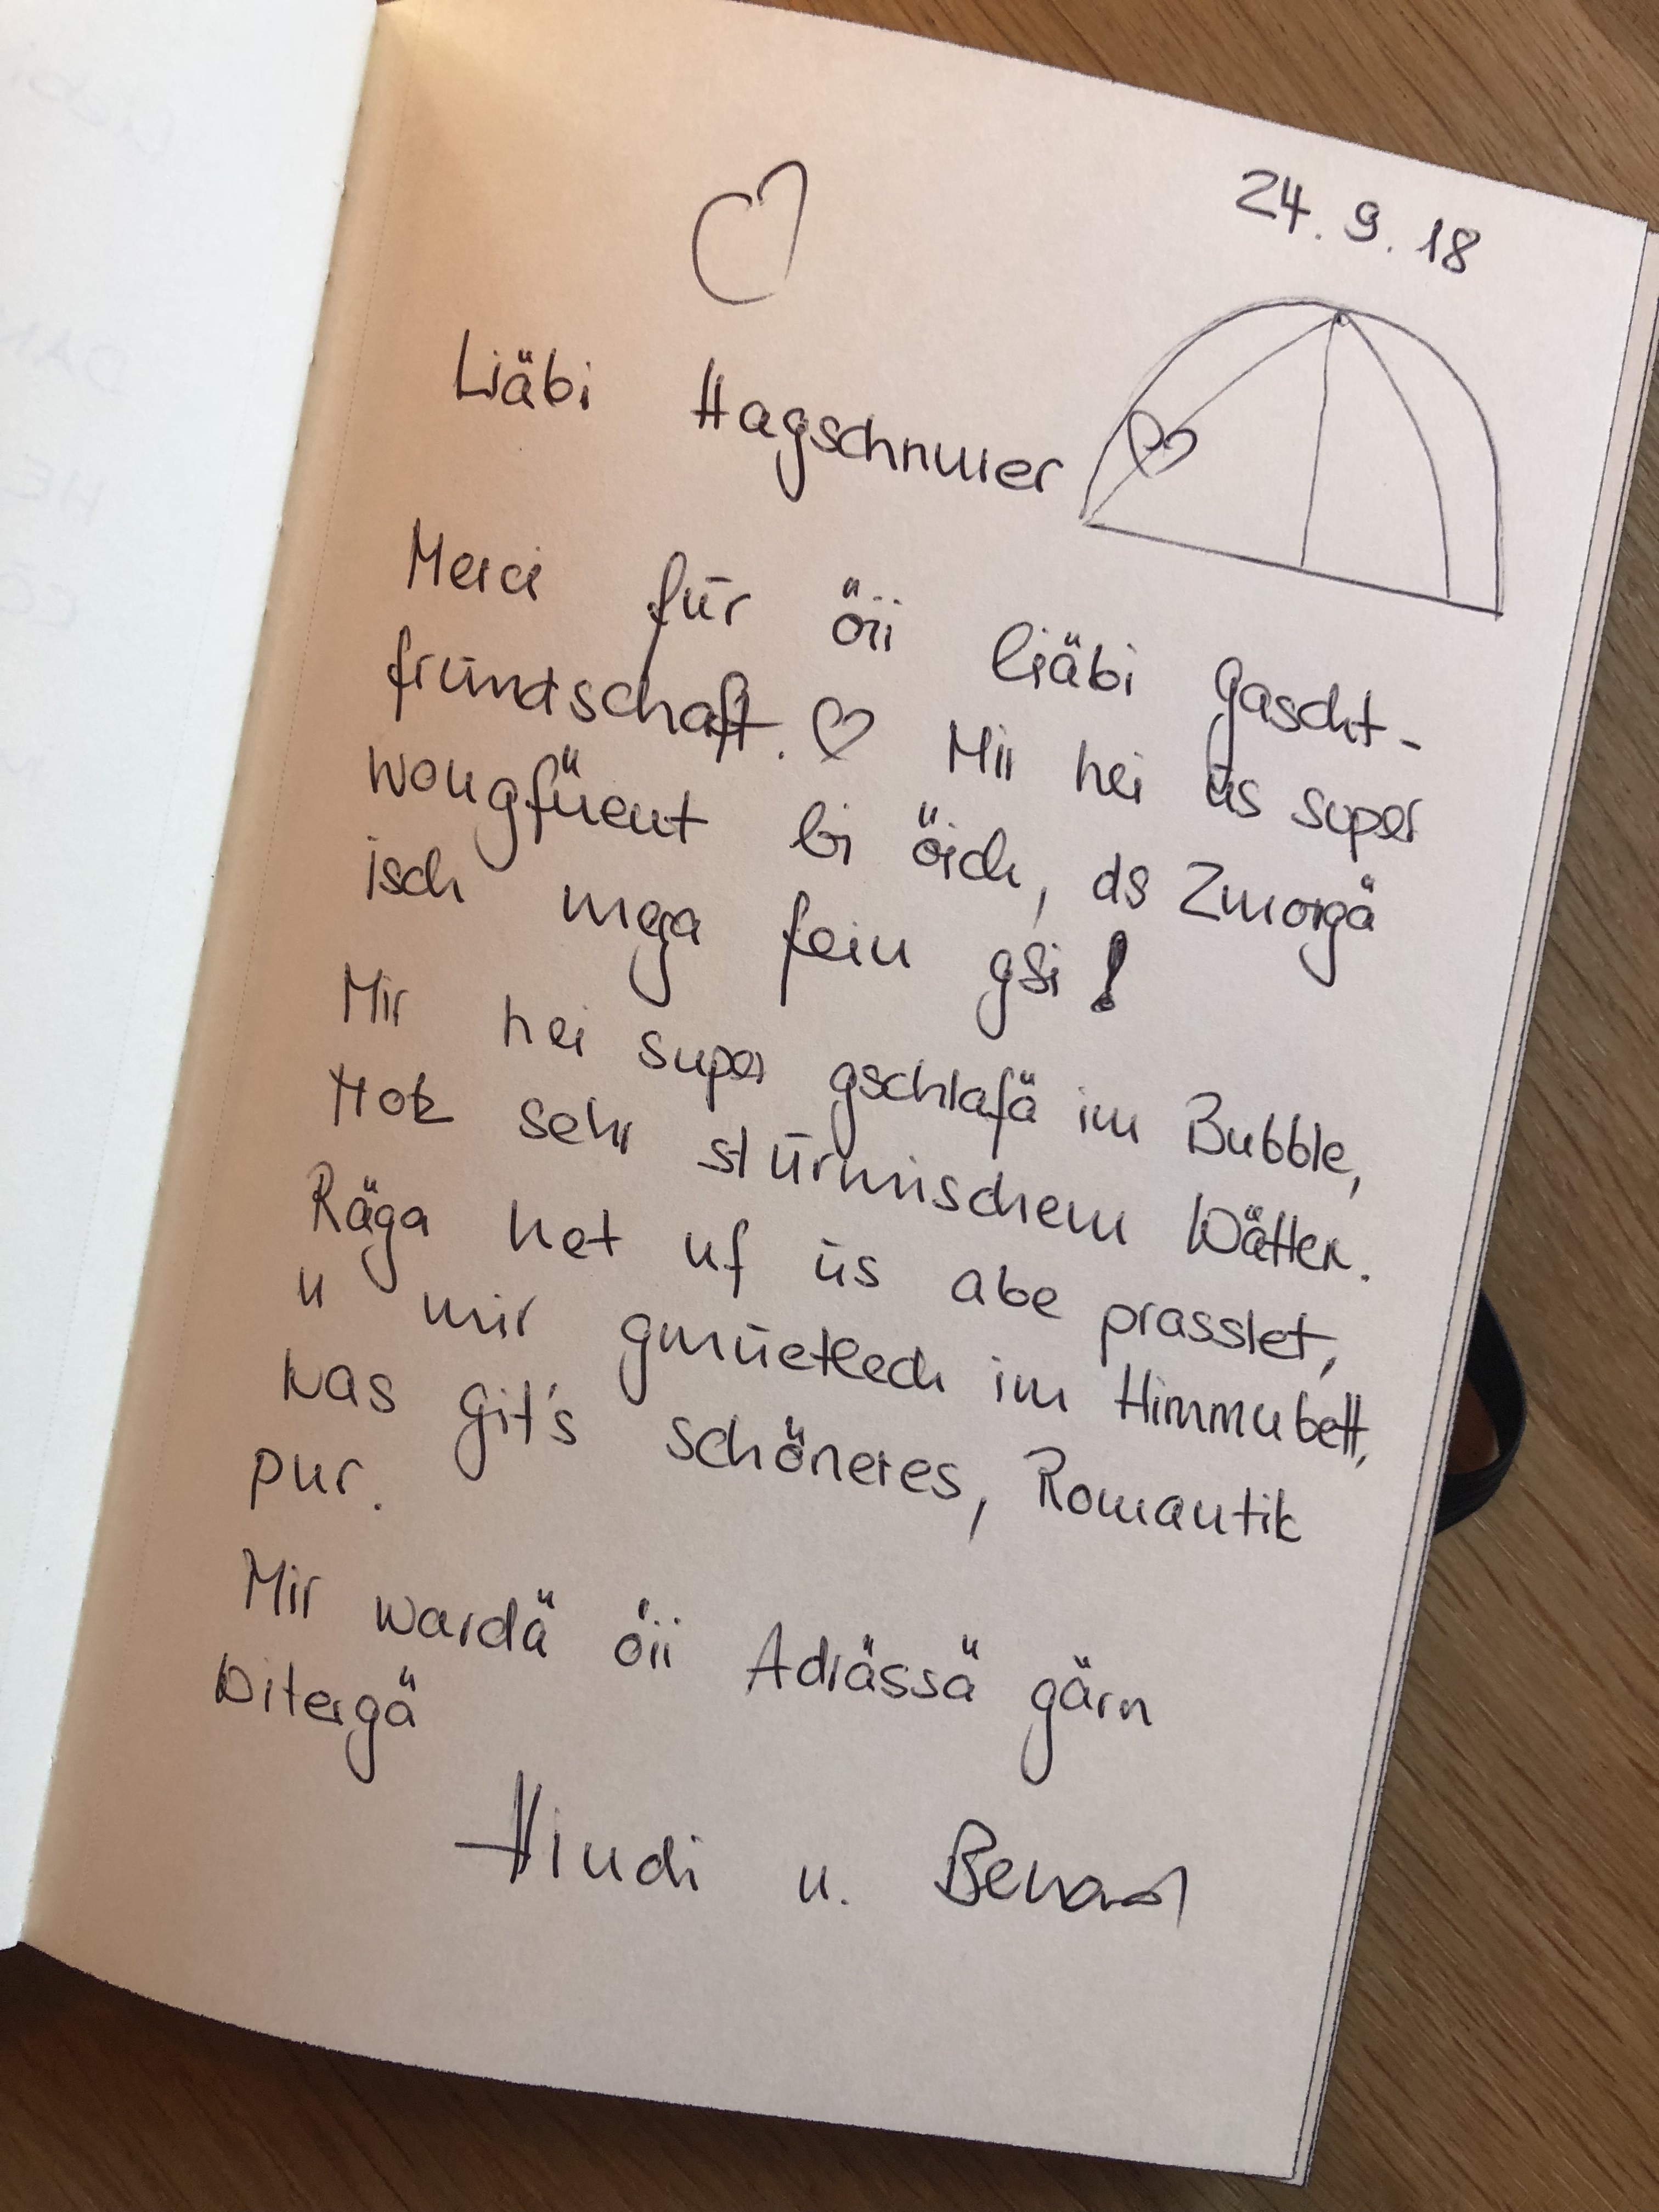 24. 9. 18
Liäbi Hagschnuer
Merci für öii liäbi Gascht-
fründschaft. Mii hei üs super
wougfüeut bi öich, ds Zmorgä
isch mega fein gsi!
Mir hei super gschlafä im Bubble,
Trotz sehr stürmischem Wätter.
Räga het uf üs abe prasslet,
u mir gmüetlech im Himmubett,
was git's schöneres, Romantik
pur.
Mir wärdä öii Adrässä gärn
Witergä
u.